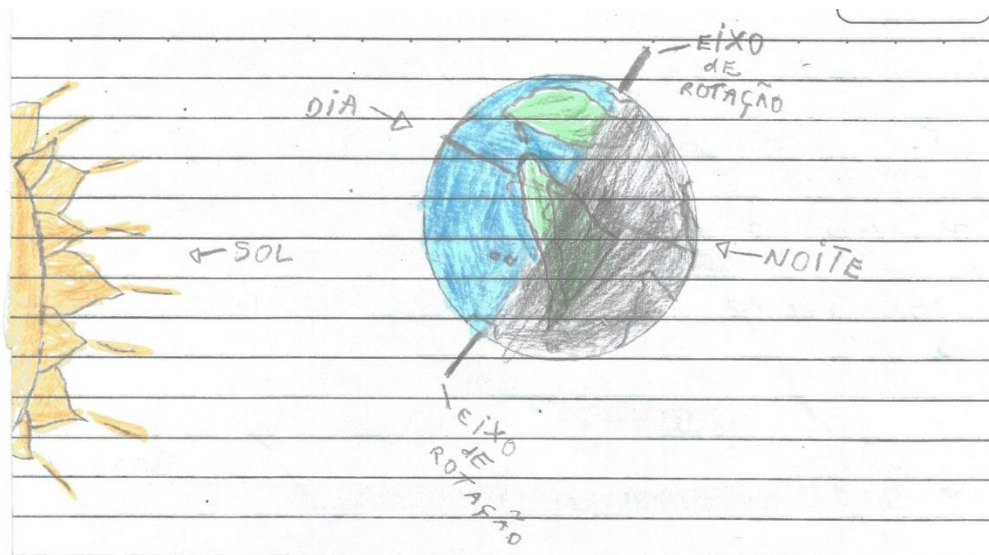 EIXO
dE
ROTAÇÃO
DiA
SOL
NOiTE
EiXO
dE
ROTAÇÃO